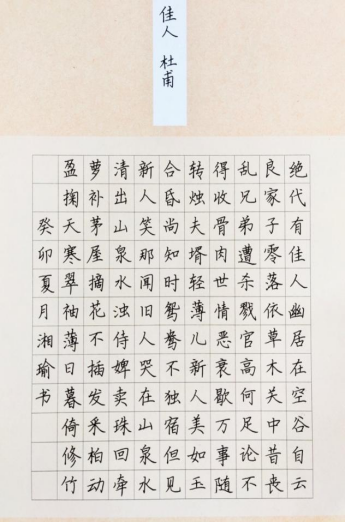 佳人 杜甫
绝代有佳人幽居在空谷自云
良家子零落依草木关中昔丧
乱兄弟遭杀戮官高何足论不
得收骨肉世情恶衰歇万事随
转烛夫婿轻薄儿新人美如玉
合昏尚知时鸳鸯不独宿但见
新人笑那闻旧人哭在山泉水
清出山泉水浊侍婢卖珠回牵
萝补茅屋摘花不插发采柏动
盈掬天寒翠袖薄日暮倚修竹
癸卯夏月湘瑜书